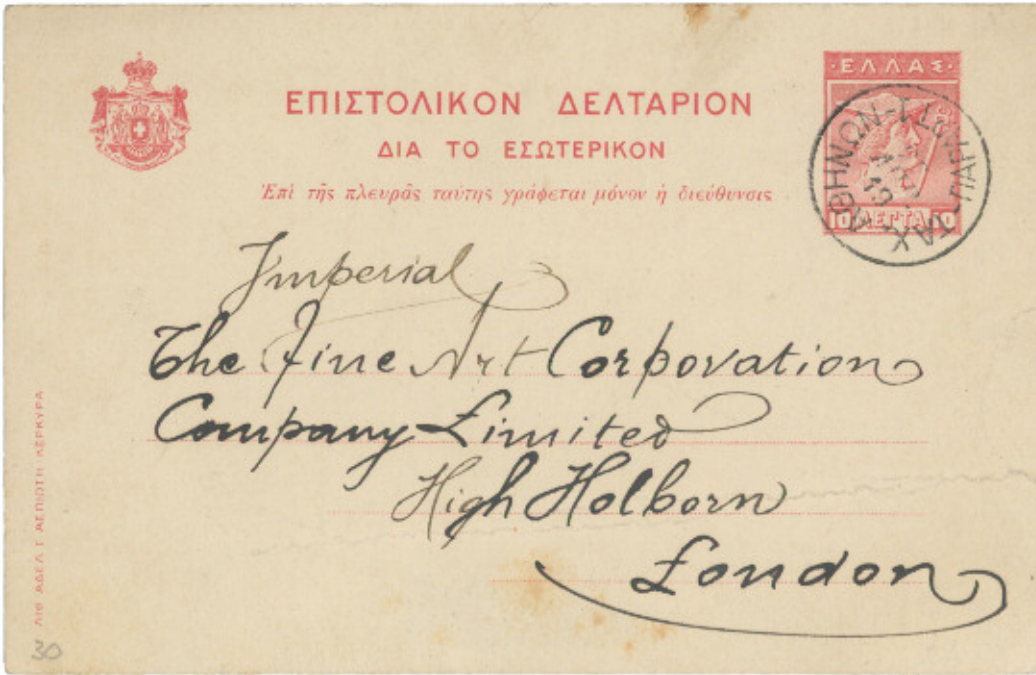 ·ΕΛΛΑΣ·
ΕΠΙΣΤΟΛΙΚΟΝ ΔΕΛΤΑΡΙΟΝ
ΔΙΑ ΤΟ ΕΣΩΤΕΡΙΚΟΝ
Ἐπὶ τῆς πλευρᾶς ταύτης γράφεται μόνον ἡ διεύθυνσις
10 ΛΕΠΤΑ 10
ΑΘΗΝΩΝ
Imperial
The Fine Art Corporation
Company Limited
High Holborn
London
ΛΙΘ ΑΔΕΛ Γ ΑΣΠΙΩΤΗ ΚΕΡΚΥΡΑ
30